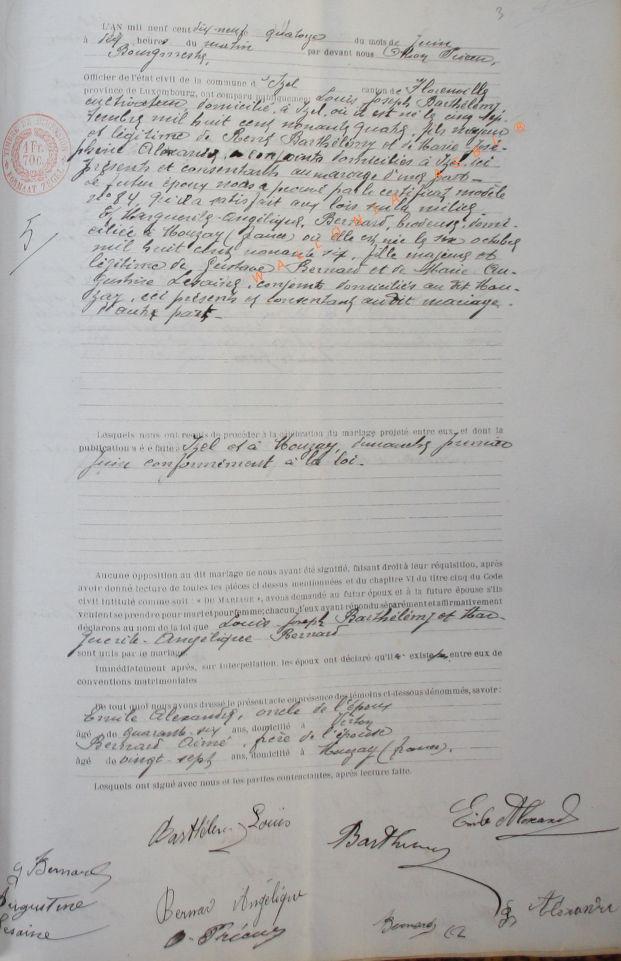 3
L'AN mil neuf cent dix-neuf quatorze du mois de Juin
à dix heures du matin par devant nous Prian
Bourgmestre,
Officier de l'état civil de la commune d'Izel canton de Florenville
province de Luxembourg, ont comparu publiquement Louis Joseph Barthélemy,
cultivateur, domicilié à Izel, où il est né le cinq sep-
tembre mil huit cent nonante quatre, fils majeur
et légitime de Barthélemy et de Marie José-
phine Alexandre, conjoints domiciliés à Izel, ici
présents et consentants au mariage d'une part -
Le futur époux nous a prouvé par le certificat modèle
n° 84, qu'il a satisfait aux lois sur la milice
Et Marguerite-Angélique, Bernard, brodeuse, domi-
ciliée à Mouzay (france) où elle est née le six octobre
mil huit cent nonante six, fille majeure et
légitime de Gustave Bernard et de Marie Au-
gustine Lesaine, conjoints domiciliés au dit Mou-
zay, ici présents et consentants au dit mariage.
d'autre part -
TIMBRE DE DIMENSION
1 Fr.
70c.
FORMAAT ZEGEL
5
WALLONIA
Lesquels nous ont requis de procéder à la célébration du mariage projeté entre eux, et dont la
publication a été faite à Izel et à Mouzay, dimanche premier
Juin conformément à la loi.
Aucune opposition au dit mariage ne nous ayant été signifié, faisant droit à leur réquisition, après
avoir donné lecture de toutes les pièces ci-dessus mentionnées et du chapitre VI du titre cinq du Code
civil intitulé comme suit : « DU MARIAGE », avons demandé au futur époux et à la future épouse s'ils
veulent se prendre pour mari et pour femme; chacun d'eux ayant répondu séparément et affirmativement
déclarons au nom de la loi que Louis Joseph Barthélemy et Mar-
guerite-Angélique Bernard
sont unis par le mariage.
Immédiatement après, sur interpellation, les époux ont déclaré qu'il existe entre eux de
conventions matrimoniales
De tout quoi nous avons dressé le présent acte en présence des témoins ci-dessous dénommés, savoir:
Emile Alexandre, oncle de l'époux
âgé de quarante-six ans, domicilié à Virton
Bernard Aimé, frère de l'épouse
âgé de vingt-sept ans, domicilié à Mouzay (france).
Lesquels ont signé avec nous et les parties contractantes, après lecture faite.
Barthélemy Louis
Emile Alexandre
Barthélemy
g Bernard
Augustine
Lesaine
Bernard Angélique
Bernard
Alexandre